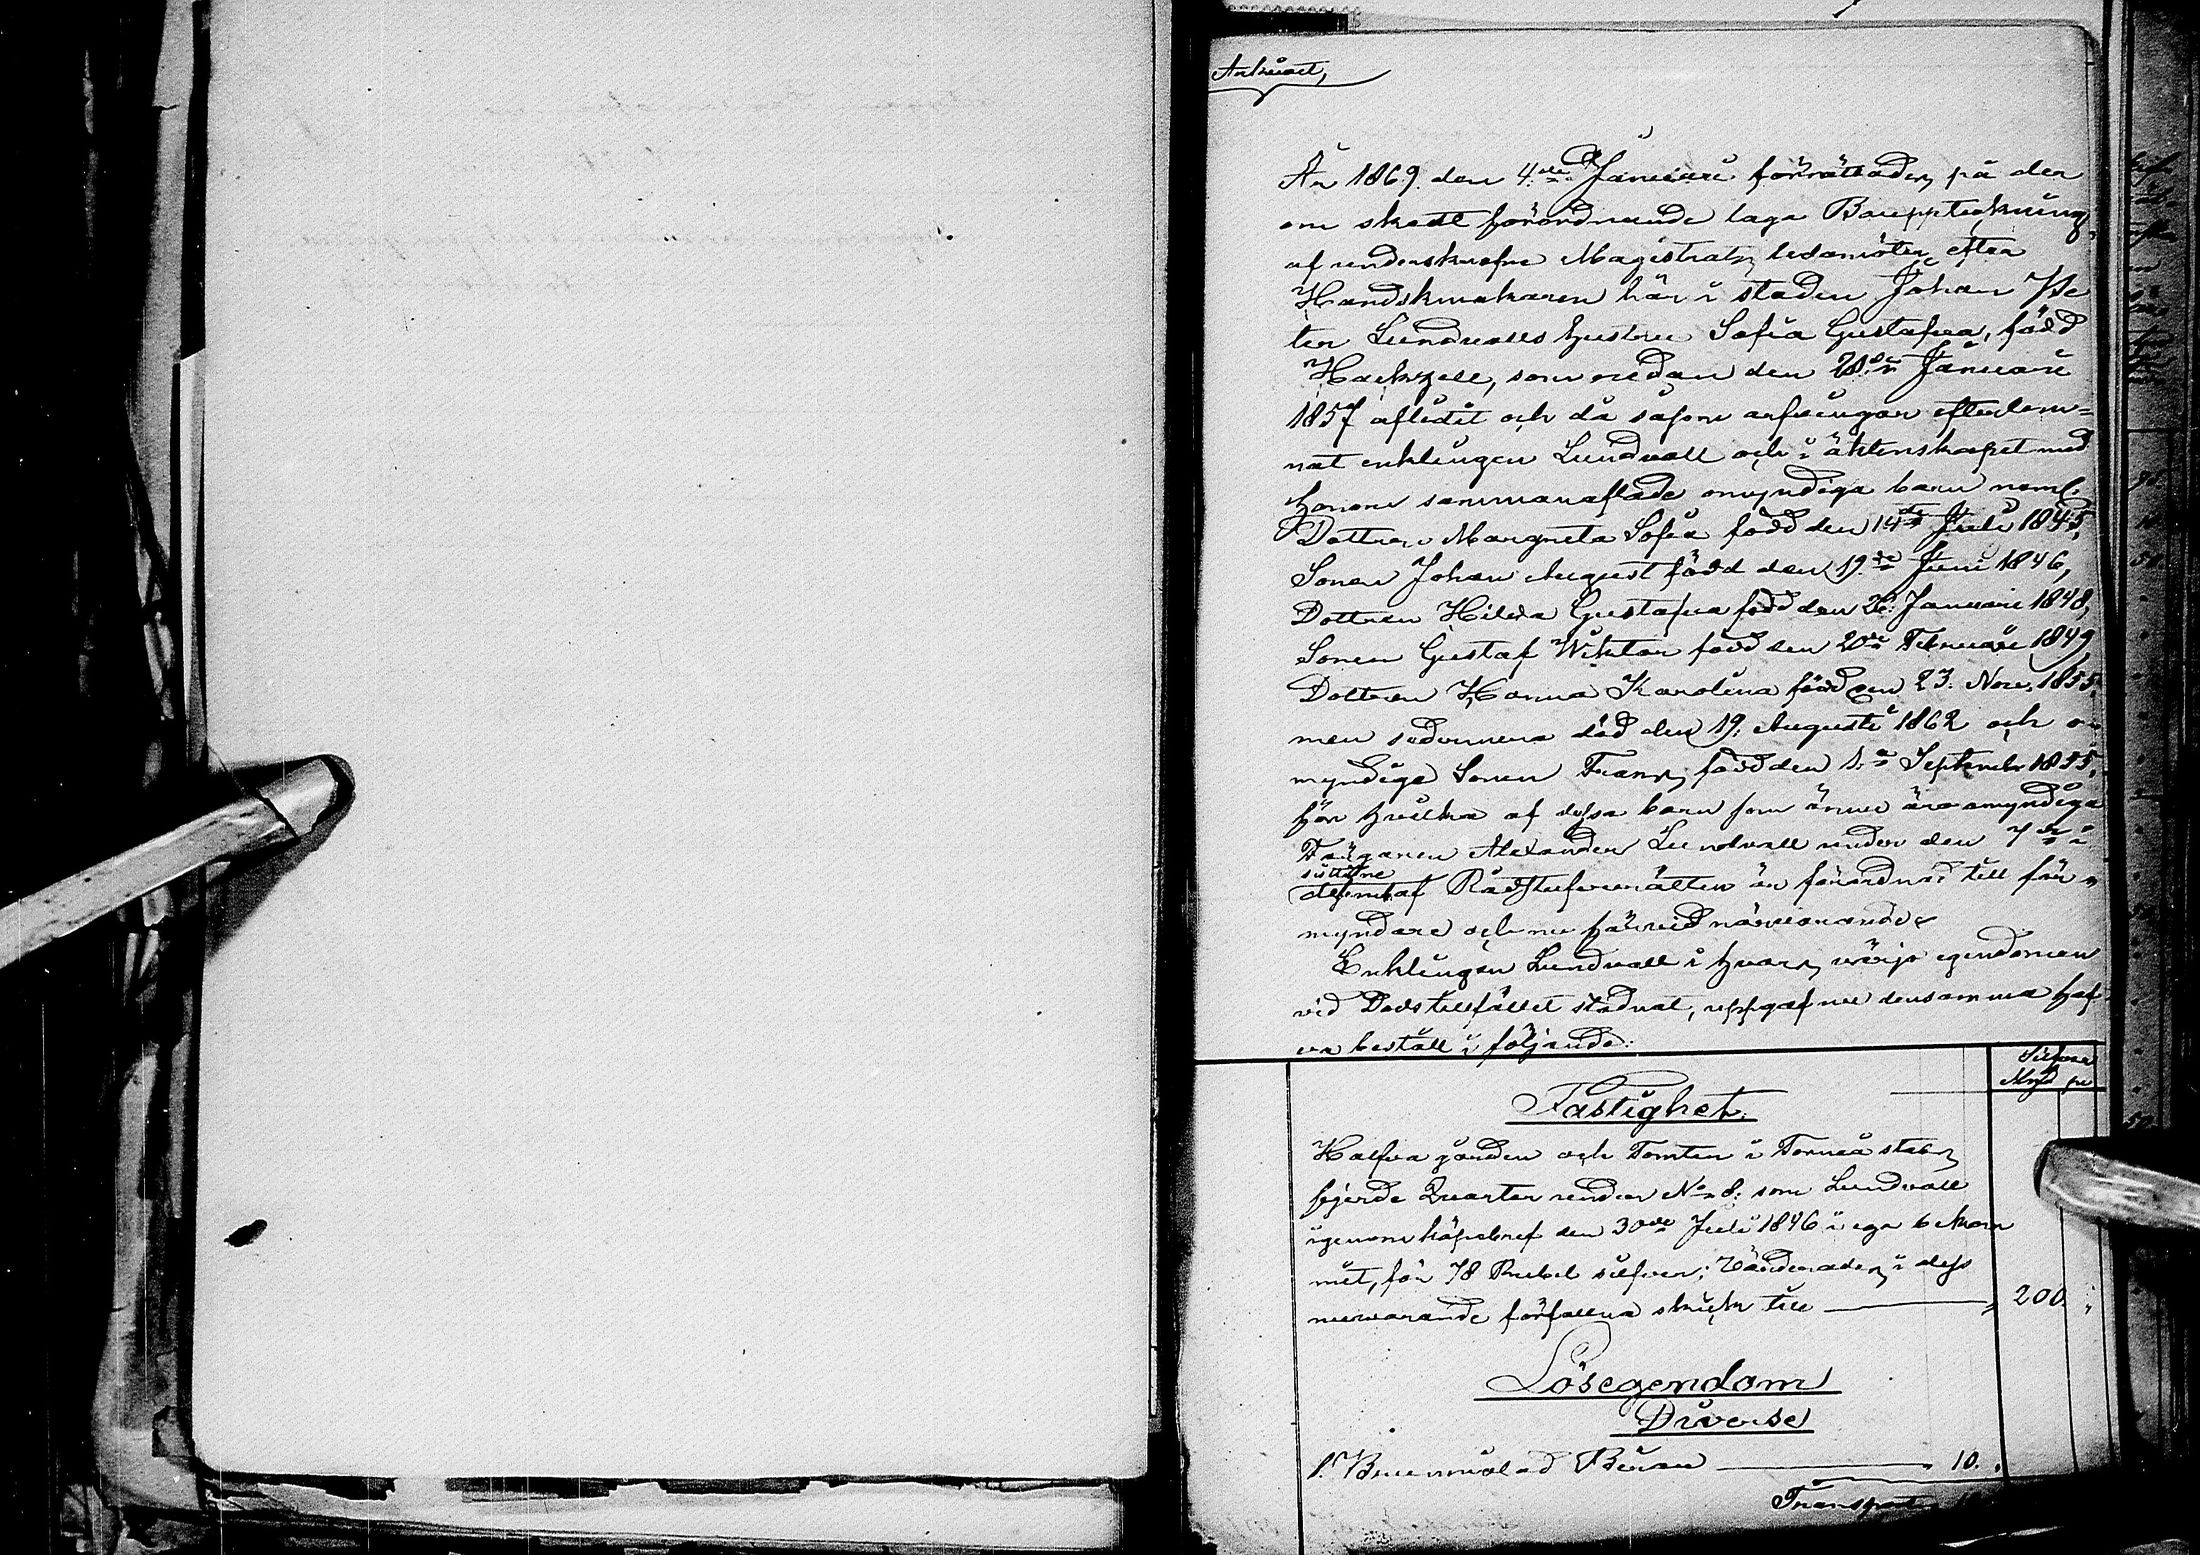 År 1869 den 4de Januari förrättades, på der
om skedt förordnande laga Bouppteckning
af underskrefne Magistrats ledamöter efter
Handskmakaren här i staden Johan Pe
ter Lundvalls hustru Sofia Gustafva, född
Hackzell, som redan den 28de Januari
1857 aflidit och då såsom arfvingar efterlem=
nat enklingen Lundvall och i äktenskapet med
honom sammanaflade omyndiga barn neml.
Dottren Margreta Sofia född den 14de Juli 1845,
Sonen Johan August född den 19de Juni 1846,
Dottren Hilda Gustafva född den 26. Januari 1848,
Sonen Gustaf Wiktor född den 20de Februari 1849,
Dottren Hanna Karolina född den 23. Nov. 1855,
men sedermera död den 19. Augusti 1862 och o
myndige Sonen Frans, född den 1a September 1855,
för hvilka af dessa barn som ännu äro omyndiga
Färgaren Alexander Lundvall under den 7de i
sittne
af Rådstufvurätten är förordnad till för
myndare och nu härvid närvarande.
Enklingen Lundvall i hvars värjo egendomen
vid Dödstillfället stadnat, uppgaf nu densamma haf
va bestått i följande:
Silfver
Fastighet.
Halfva gården och Tomten i Torneå stads
fjerde Quarter under No 8. som Lundvall
igenom köpebref den 30de Juli 1846 i ega bekom
mit, för 78 Rubel silfver; Värderades i dess
nuvarande förfallna skick till — 200.
Lösegendom
Diverse
1. Brunmålad Byrån — 10.
Transport